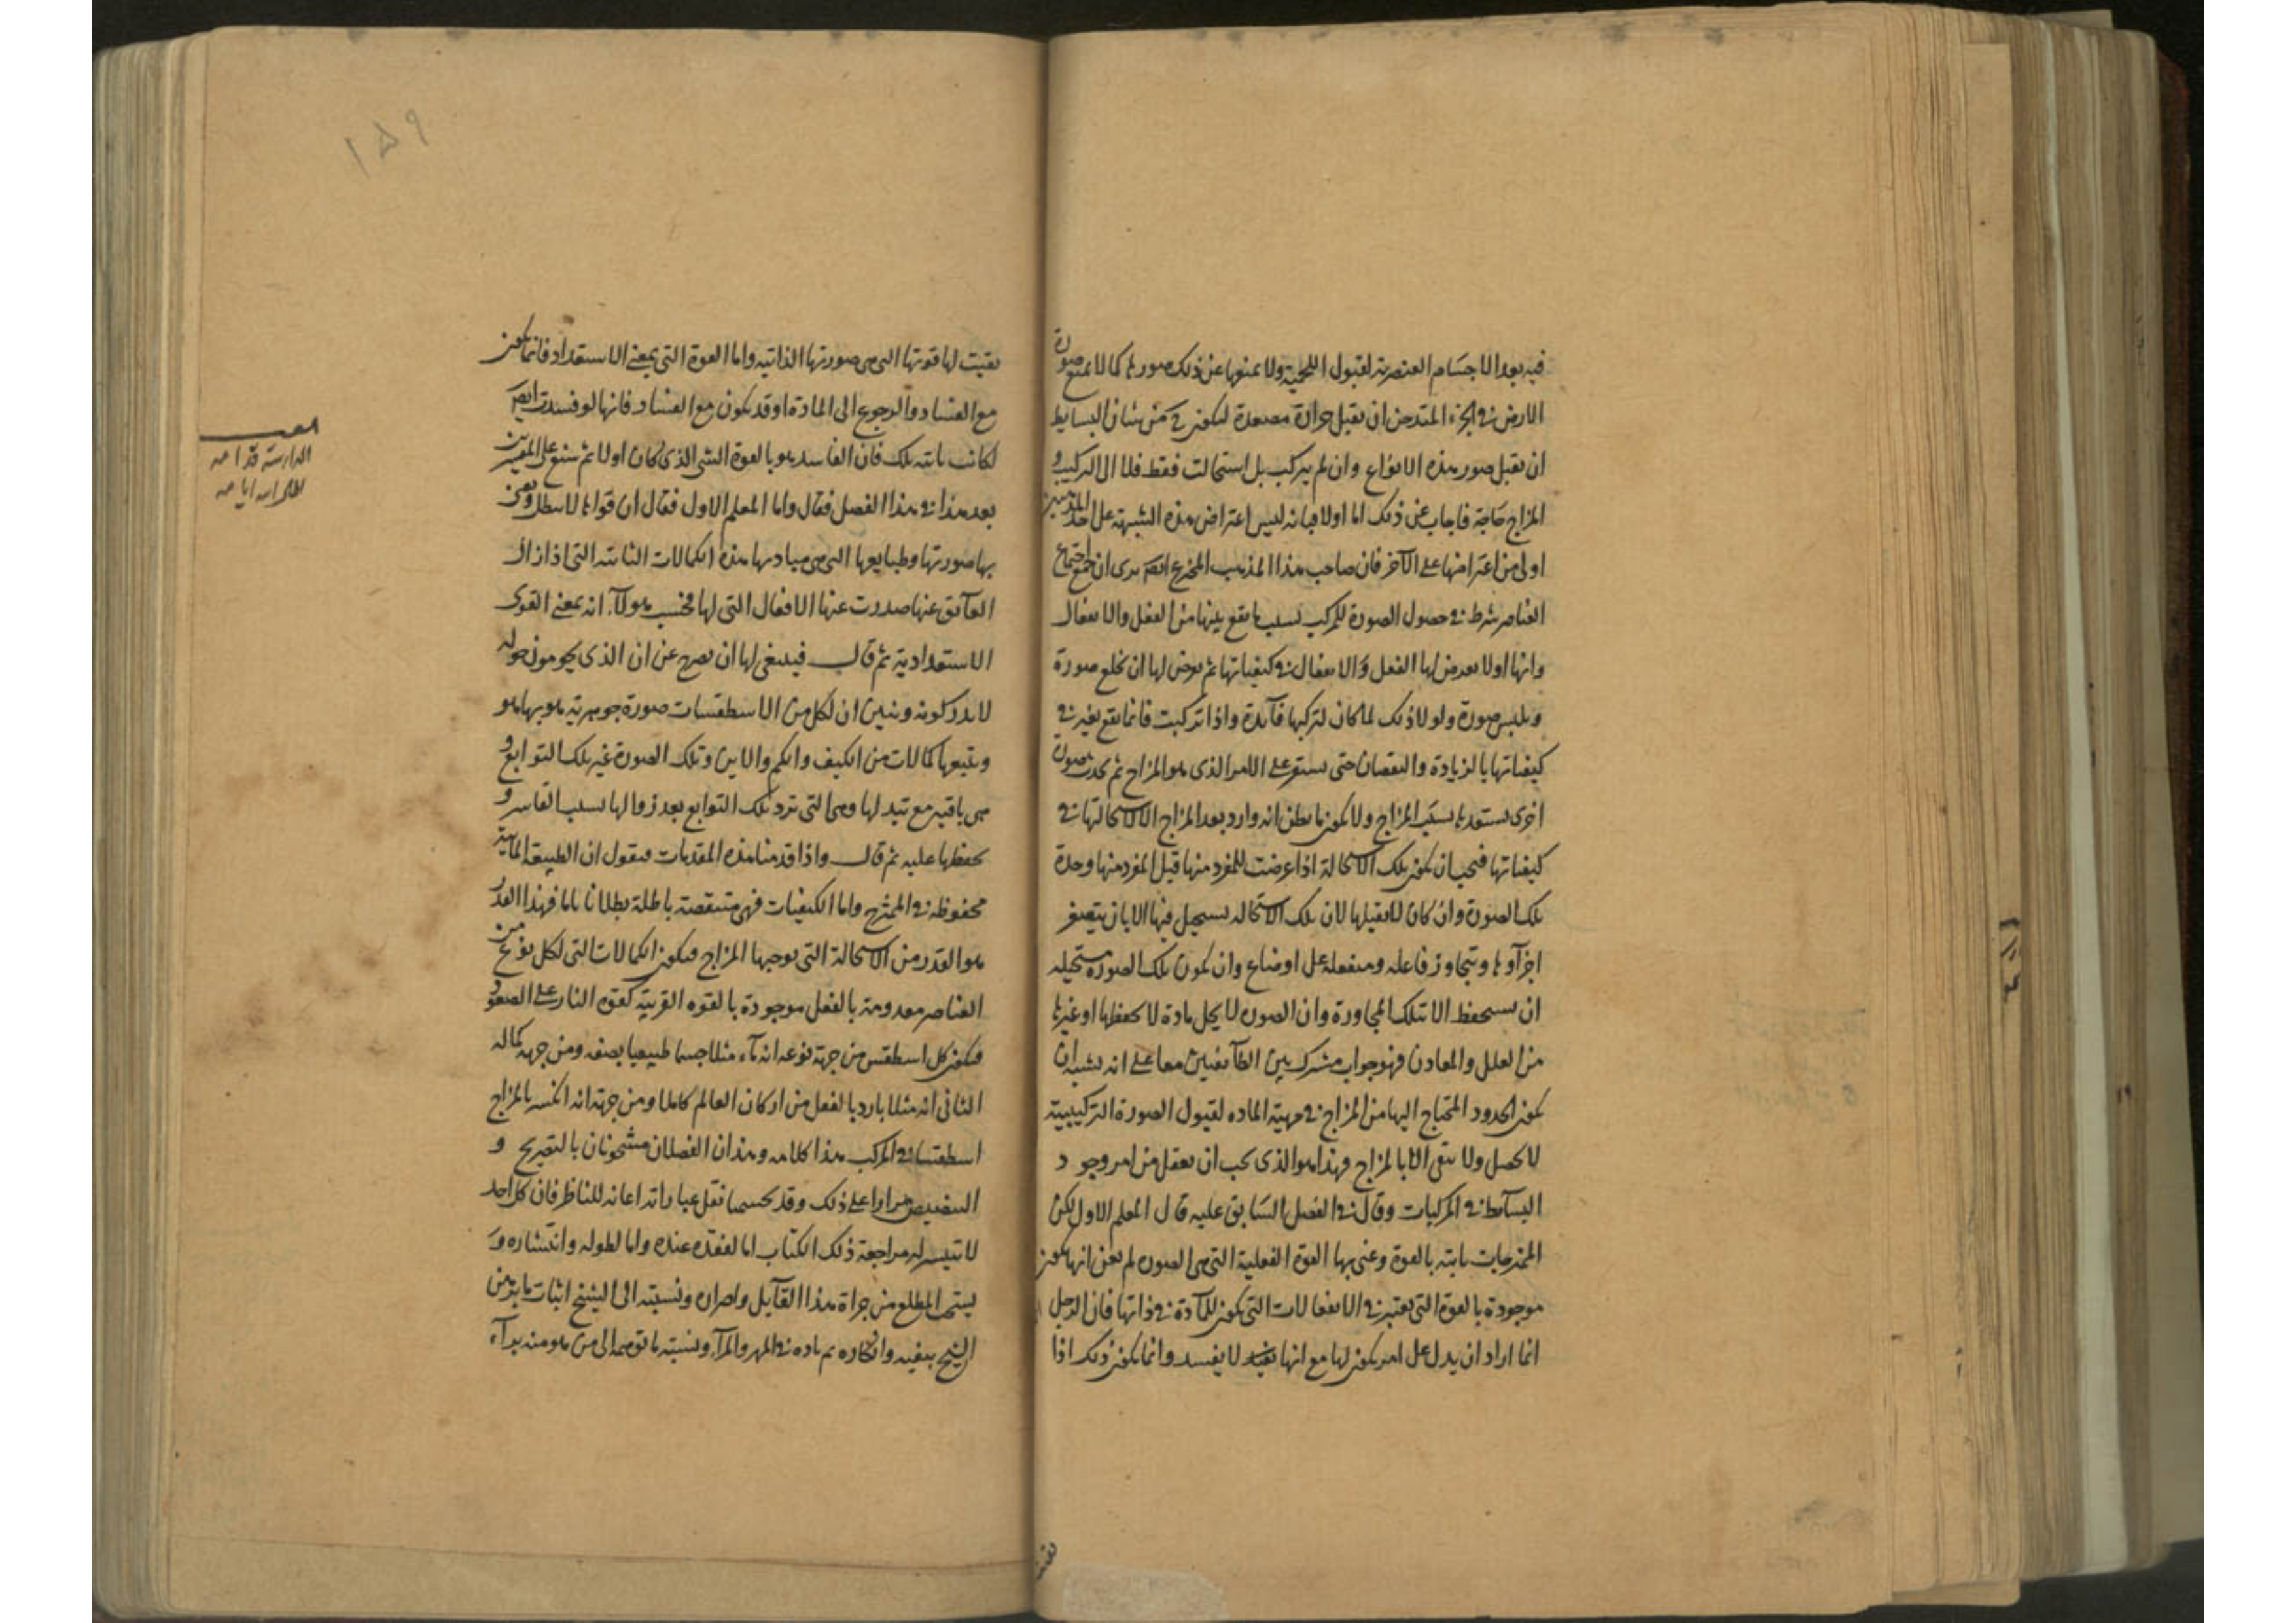 فيه بعد الاجسام العنصرية لقبول اللحمية ولا عنوها عن ذلك صورها كما لا تمنع صورة
الارض في الجزء المتدخن ان يقبل حرارة مصعدة ليكون ح من شان البسايط
ان يقبل صور هذه الانواع وان لم يتركب بل استحالت فقط فلا الى التركيب و
المزاج حاجة فاجاب عن ذلك اما اولا فبانه ليس اعتراض هذه الشبهة على احد المذهبين
اولى من اعتراضها على الآخر فان صاحب هذا المذهب المخترع ايضا يرى ان اجتماع
العناصر شرط في حصول الصورة للمركب بسبب ما يقع بينها من الفعل والانفعال
وانها اولا يعرض لها الفعل والانفعال في كيفياتها ثم يعرض لها ان تخلع صورة
ويلبس صورة ولولا ذلك لما كان لتركبها فآئدة واذا تركبت فانما يقع تغير في
كيفياتها بالزيادة والنقصان حتى يستقر على الامر الذي هو المزاج ثم يحدث صورة
اخرى يستعد ها بسبب المزاج ولا يكون ما يظن انه وارد بعد المزاج الا لاستحالتها في
كيفياتها فيجب ان يكون تلك الاستحالة اذا عرضت للمفرد منها قبل المفرد منها وحدة
تلك الصورة وان كان لا يقبلها لان تلك الاستحالة يستحيل فيها الا بان يتصغر
اجزآوها ويتجاوز فاعله ومنفعله على اوضاع وان يكون تلك الصورة مستحيله
ان يستحفظ الا بتلك المجاورة وان الصوره لا يحل مادة لا يحفظها او غيرها
من العلل والمعادن فهو جواب مشترك بين الطآئفتين معا على انه يشبه ان
يكون الحدود المحتاج اليها من المزاج في تهيئة الماده لقبول الصورة التركيبية
لا يحصل ولا يبقى الا بالمزاج فهذا هو الذي يجب ان يعقل من امر وجود
البسآئط في المركبات وقال في الفصل السابق عليه قال المعلم الاول لكن
الممتزجات ثابته بالقوة وعنى بها القوة الفعلية التي هي الصوره لم يعن انها يكون
موجودة بالقوة التي يعتبر في الانفعالات التي يكون للمآدة في ذاتها فان الرجل
انما اراد ان يدل على امر يكون لها مع انها لا يفسد وانما يكون ذلك اذا
١٥٩
بقيت لها قوتها التي هي صورتها الذاتيه واما القوة التي بمعنى الاستعداد فانما يكون
مع الفساد والرجوع الى المادة او قد يكون مع الفساد فانها لو فسدت ايضا
لكانت ثابته بتلك فان الفاسد هو بالقوة الشي الذي كان اولا ثم شنع على المفسرين
بعد هذا في هذا الفصل فقال واما المعلم الاول فقال ان قواها لا يبطل ويعني
بها صورتها وطبايعها التي هي مباديها هذه الكمالات الثانيه التي اذا زال
العآئق عنها صدرت عنها الافعال التي لها فحسب هولآء انه يعني القوى
الاستعدادية ثم قال فينبغي لها ان نصرح عن ان الذي يحومون حوله
لا يدركونه ونبين ان لكل من الاسطقسات صورة جوهرية هو بها هو
ويتبعها كمالات من الكيف والكم والاين وتلك الصورة غير تلك التوابع و
هي باقيه مع تبدلها وهي التي ترد تلك التوابع بعد زوالها بسبب القاسر و
يحفظها عليه ثم قال واذا قدمنا هذه المقدمات فنقول ان الطبيعة المآئية
محفوظه في الممتزج واما الكيفيات فهي منتقصة باطلة بطلانا ما فهذا القدر
هو القدر من الاستحالة التي يوجبها المزاج فيكون الكمالات التي لكل نوع من
العناصر معدومة بالفعل موجودة بالقوه القريبه كقوه النار على الصعود
فيكون كل اسطقس من جهة نوعه انه مآء مثلا جسما طبيعيا بصفه ومن جهة كماله
الثاني انه مثلا بارد بالفعل من اركان العالم كاملا ومن جهة انه انكسر بالمزاج
اسطقسا في المركب هذا كلامه وهذان الفصلان مشحونان بالتصريح و
التنصيص مرارا على ذلك وقد تجشمنا نقل عباراته اعانه للناظر فان كل احد
لا يتيسر له مراجعة ذلك الكتاب اما لفقده عنده واما لطوله وانتشاره و
يستحب المطلع من جراة هذا القآئل واصراره ونسبته الى الشيخ اثبات ما يدين
الشيخ بنفيه وانكاره ونسبته ما توهمه الى من هو منه برآء